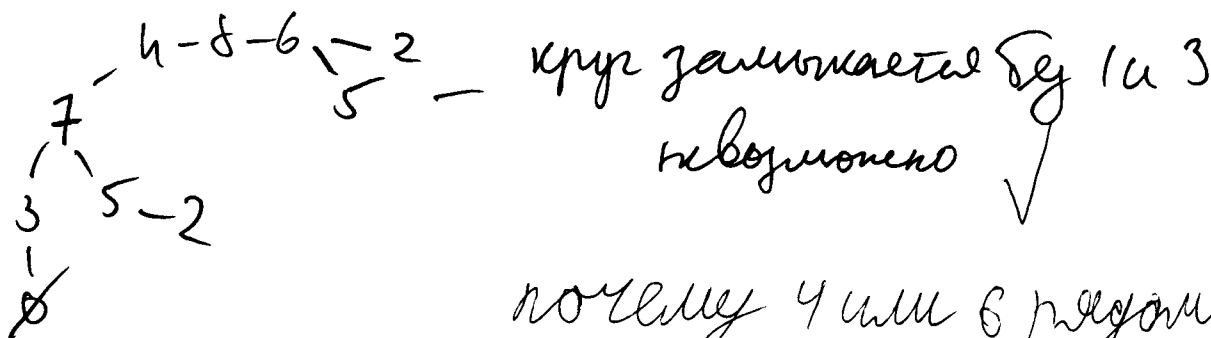 4 - 8 - 6 - 2
5 - круг замыкается без 1 и 3
7
невозможно
3 5 - 2
6
почему 4 или 6 рядом